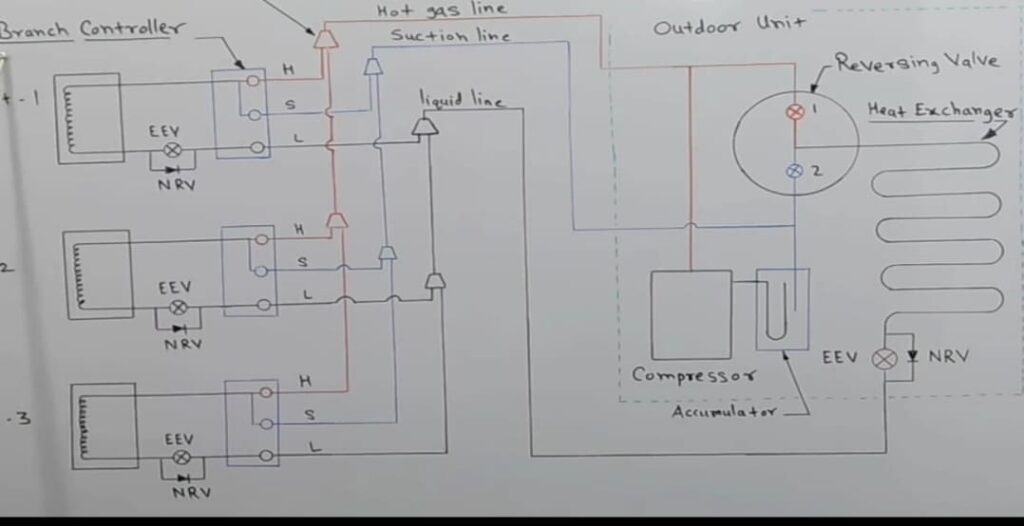 Hot gas line
Suction line
Outdoor Unit
Branch Controller
Reversing Valve
Heat Exchanger
liquid line
- 1
H
S
L
EEV
NRV
1
2
2
H
S
L
EEV
NRV
Compressor
Accumulator
EEV
NRV
-3
H
S
L
EEV
NRV